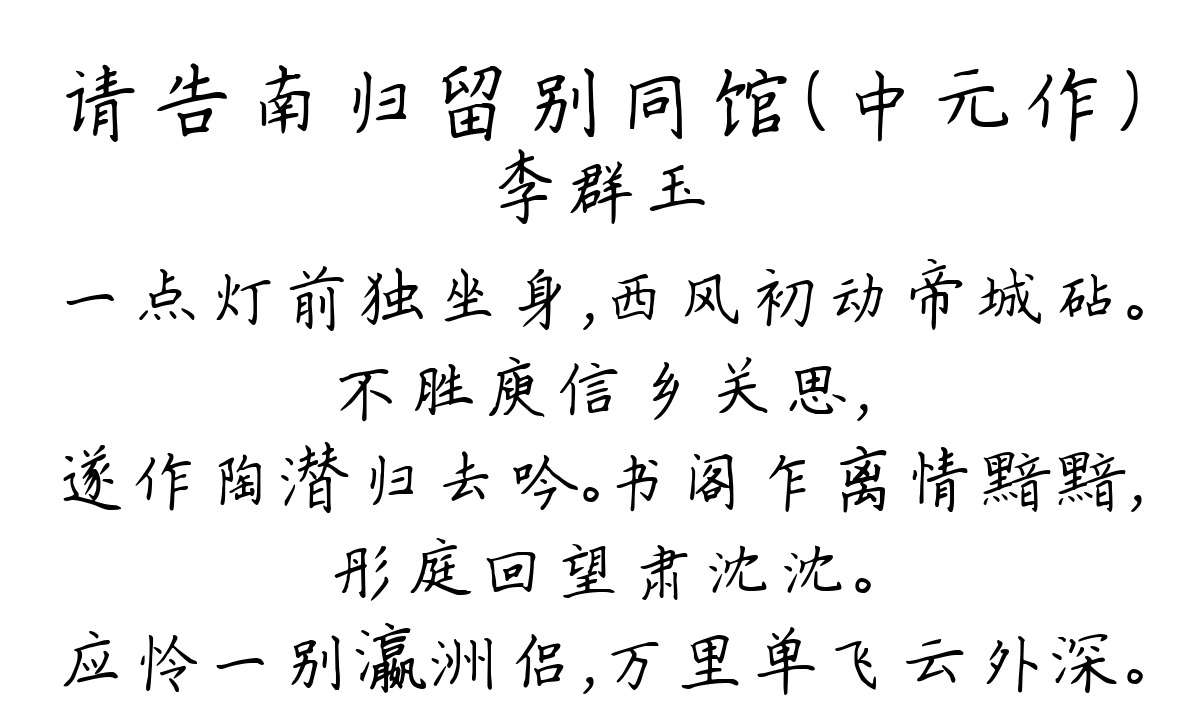 请告南归留别同馆(中元作)
李群玉
一点灯前独坐身,西风初动帝城砧。
不胜庾信乡关思,
遂作陶潜归去吟。书阁乍离情黯黯,
彤庭回望肃沈沈。
应怜一别瀛洲侣,万里单飞云外深。